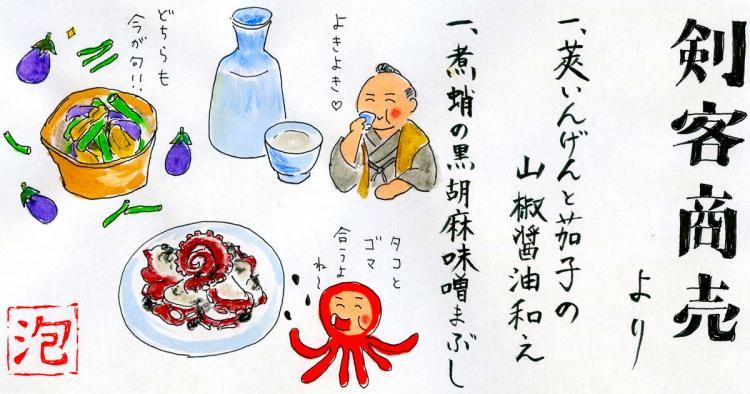 剣客商売
より
一、莢いんげんと茄子の
山椒醤油和え
一、煮蛸の黒胡麻味噌まぶし
よきよき♡
どちらも
今が旬!!
タコと
ゴマ
合うよ
ね〜
泡